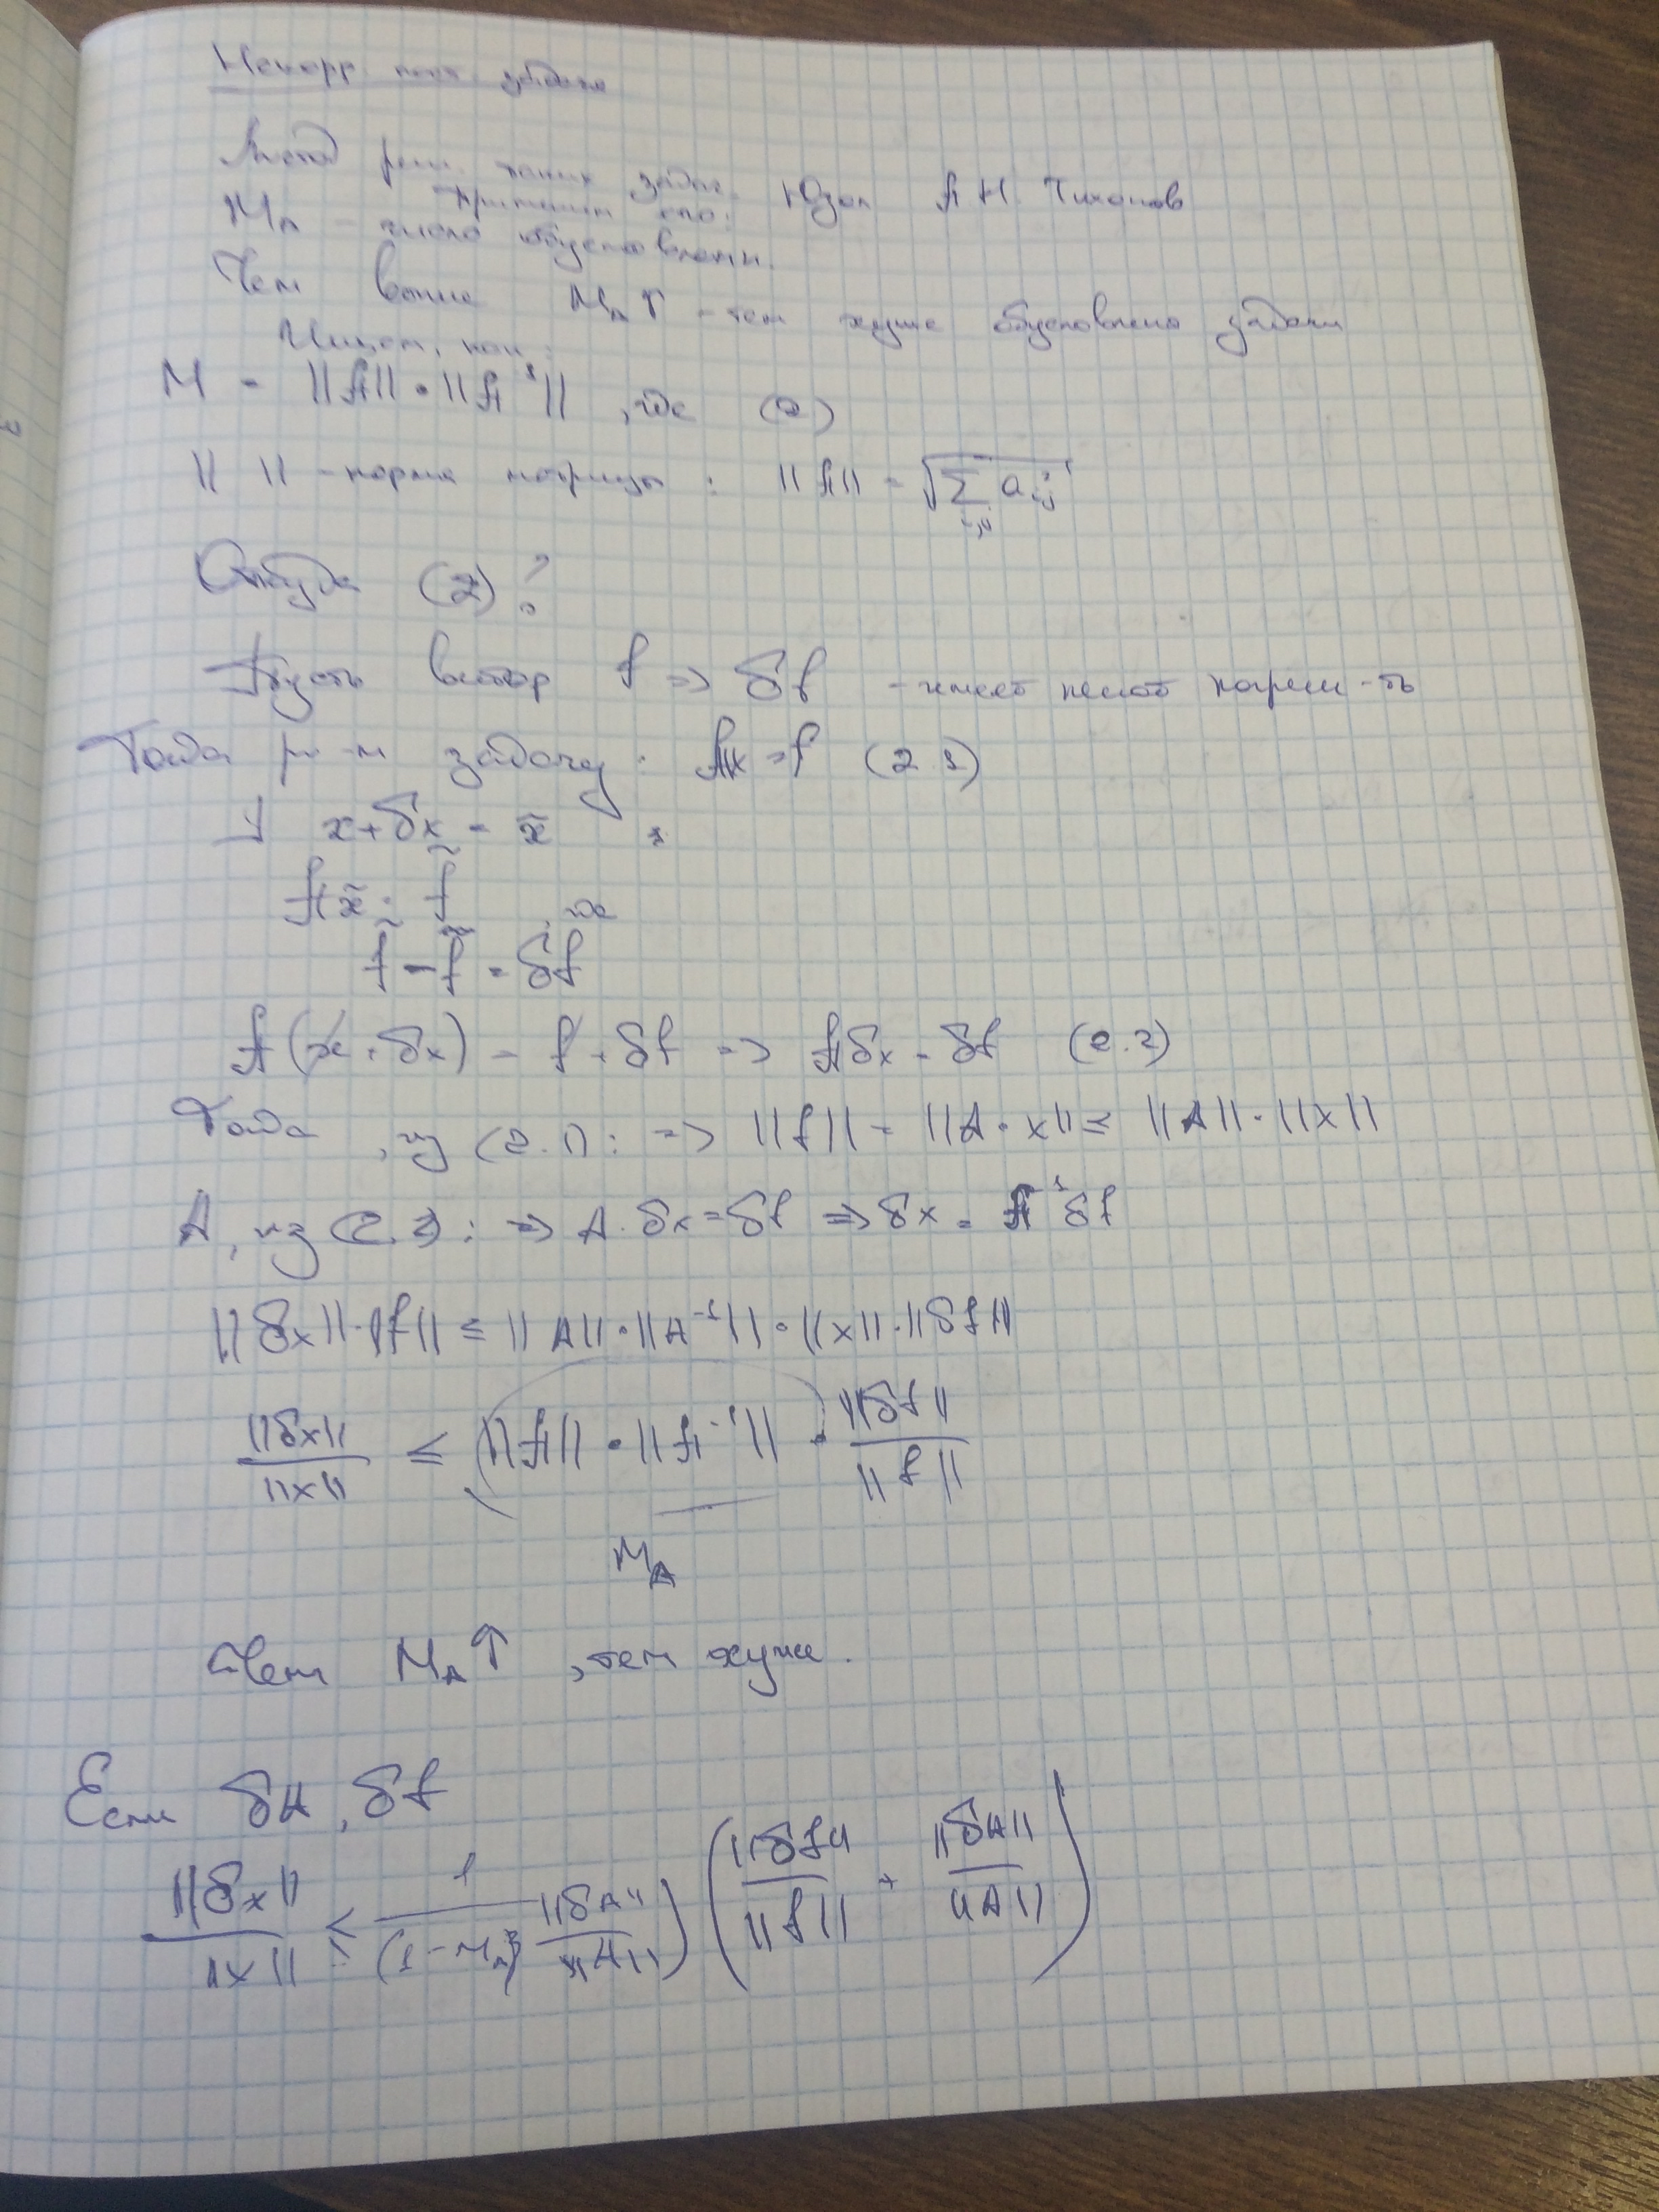 Некорр. пост. задача
Метод реш. таких задач. Юзал А Н. Тихонов
Применим его:
M_A - число обусловленн.
Чем выше M_A ↑ - тем хуже обусловлена задача
Ищем, как:
M = ||A|| • ||A^{-1}||, где (2)
|| || - норма матрицы : ||A|| = √(∑_{i,j} a_{ij}^2)
Откуда (2)?
Пусть вектор f => δf - имеет некот погреш-ть
Тогда р-м задачу : Ax = f (2.1)
x + δx = x̃
Ax̃ = f̃, где
f̃ - f = δf
A(x + δx) = f + δf => Aδx = δf (2.2)
Тогда, из (2.1): => ||f|| = ||A • x|| ≤ ||A|| • ||x||
А, из (2.2): => A • δx = δf => δx = A^{-1} δf
||δx|| • ||f|| ≤ ||A|| • ||A^{-1}|| • ||x|| • ||δf||
||δx|| / ||x|| ≤ (||A|| • ||A^{-1}||) • ||δf|| / ||f||
M_A
Чем M_A ↑, тем хуже.
Если δA, δf
||δx|| / ||x|| ≤ 1 / (1 - M_A ||δA|| / ||A||) (||δf|| / ||f|| + ||δA|| / ||A||)